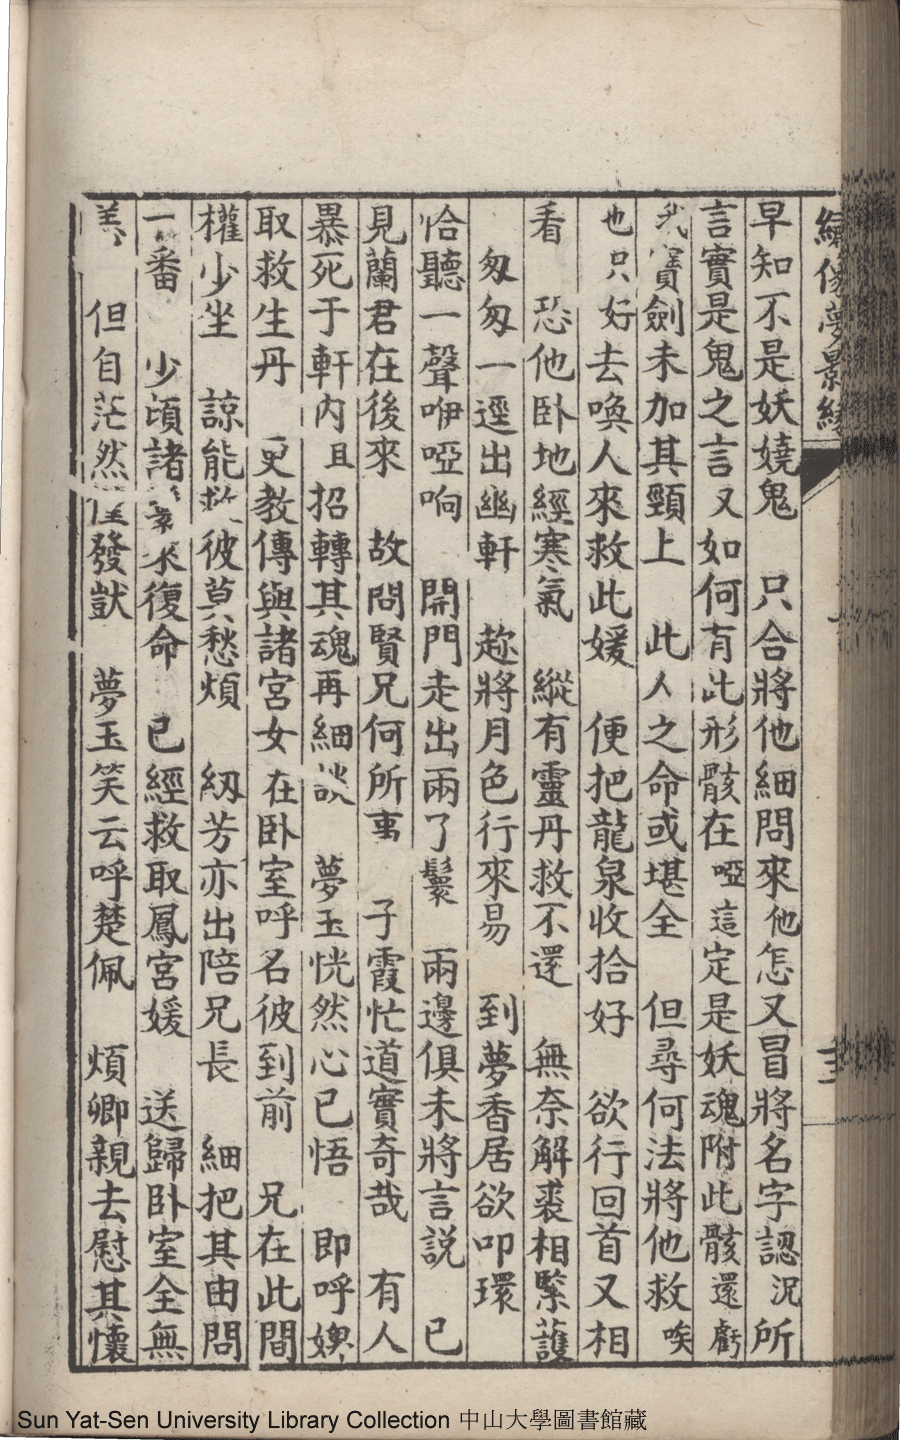 繡像夢影緣
早知不是妖嬈鬼 只合將他細問來 他怎又冒將名字認 况所
言實是鬼之言 又如何有此形骸在 啞這定是妖魂附此骸 還虧
我寶劍未加其頸上 此人之命或堪全 但尋何法將他救 唉
也只好去喚人來救此媛 便把龍泉收拾好 欲行回首又相
看 恐他卧地經寒氣 縱有靈丹救不還 無奈解裘相緊護
匆匆一逕出幽軒 趂將月色行來易 到夢香居欲叩環
恰聽一聲咿啞响 開門走出兩了鬟 兩邊俱未將言說 已
見蘭君在後來 故問賢兄何所事 子霞忙道實奇哉 有人
暴死于軒內 且招轉其魂再細談 夢玉恍然心已悟 即呼婢
取救生丹 更教傳與諸宮女 在卧室呼名彼到前 兄在此間
權少坐 諒能救彼莫愁煩 紉芳亦出陪兄長 細把其由問
一番 少頃諸來復命 已經救取鳳宮媛 送歸卧室全無
恙 但自茫然發獃 夢玉笑云呼楚佩 煩卿親去慰其懷
Sun Yat-Sen University Library Collection 中山大學圖書館藏